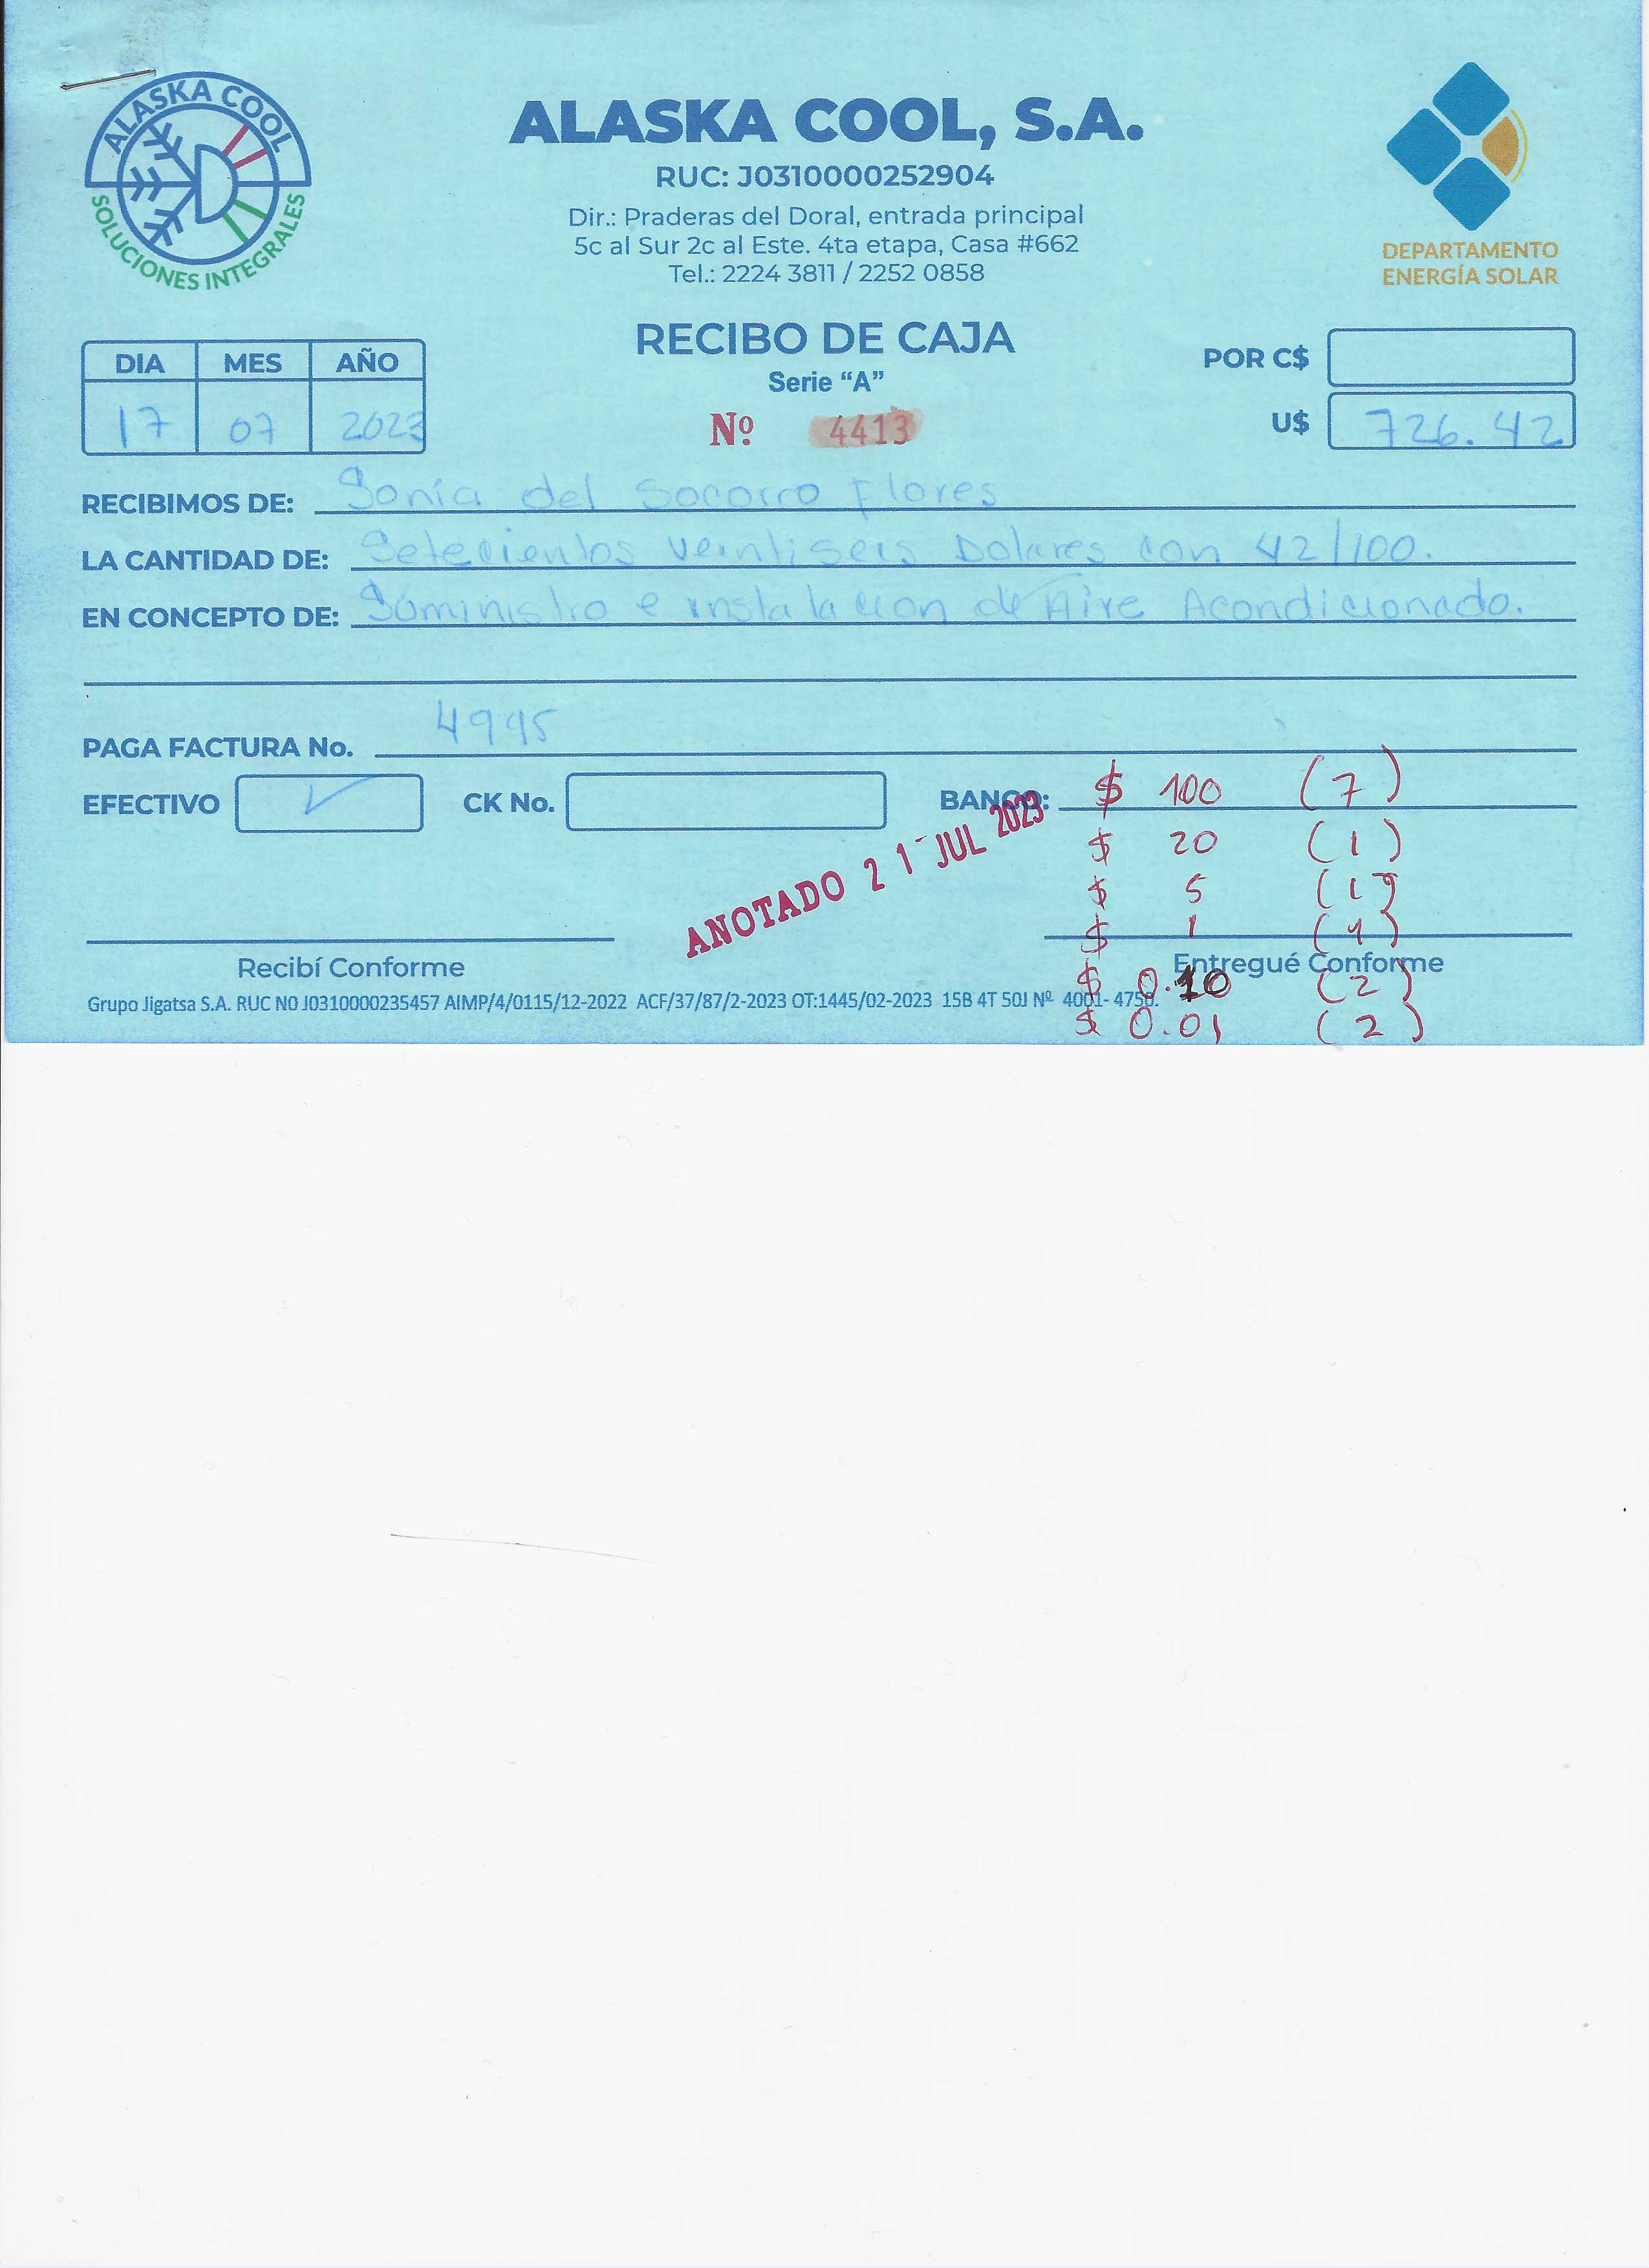 ALASKA COOL
SOLUCIONES INTEGRALES
ALASKA COOL, S.A.
RUC: J0310000252904
Dir.: Praderas del Doral, entrada principal
5c al Sur 2c al Este. 4ta etapa, Casa #662
Tel.: 2224 3811 / 2252 0858
DEPARTAMENTO
ENERGÍA SOLAR
RECIBO DE CAJA
Serie “A”
Nº 4413
DIA MES AÑO
17 07 2023
POR C$
U$ 726.42
RECIBIMOS DE: Sonia del Socorro Flores
LA CANTIDAD DE: Setecientos veintiseis Dolares con 42/100.
EN CONCEPTO DE: Suministro e instalacion de Aire Acondicionado.
PAGA FACTURA No. 4995
EFECTIVO ✓ CK No. BANCO:
$ 100 (7)
$ 20 (1)
$ 5 (1)
$ 1 (1)
$ 0.10 (2)
$ 0.01 (2)
ANOTADO 21 JUL 2023
Recibí Conforme
Entregué Conforme
Grupo Jigatsa S.A. RUC N0 J0310000235457 AIMP/4/0115/12-2022 ACF/37/87/2-2023 OT:1445/02-2023 15B 4T 50J Nº 4001- 4750.